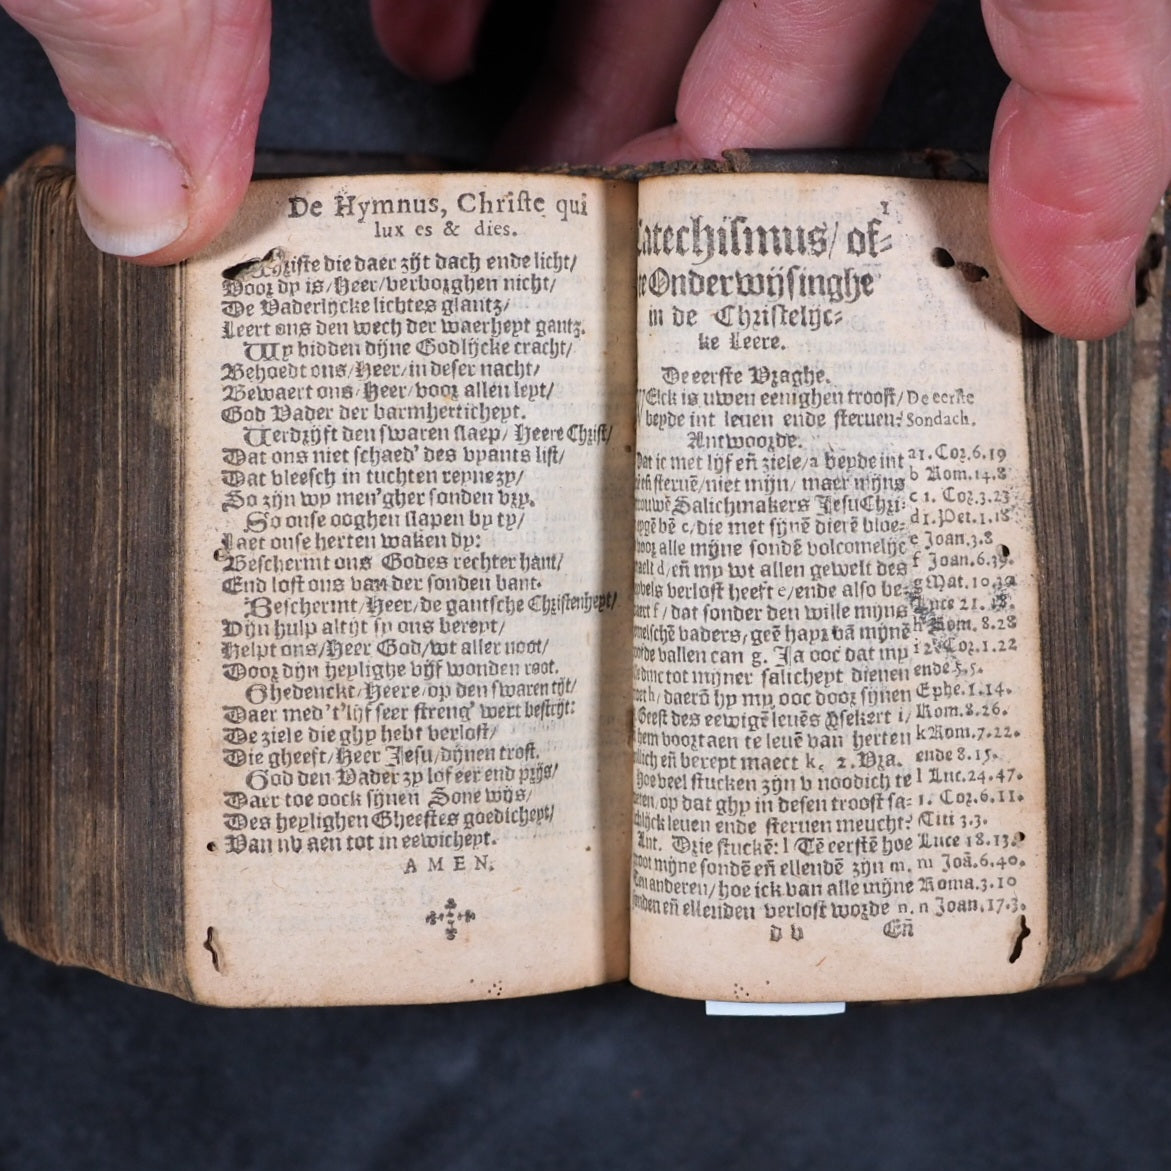 De Hymnus, Christe qui
lux es & dies.
Christe die daer zijt dach ende licht/
Voor dy is/ Heer/ verborghen nicht/
De Vaderlycke lichtes glantz/
Leert ons den wech der waerheyt gantz.
Wy bidden dijne Godlijcke cracht/
Behoedt ons/ Heer/ in deser nacht/
Bewaert ons/ Heer/ voor allen leyt/
God Vader der barmherticheyt.
Verdzijft den swaren slaep/ Heere Christ/
Dat ons niet schaed' des vyants list/
Dat vleesch in tuchten reyne zy/
So zijn wy men'gher sonden vry.
So onse ooghen slapen by ty/
Laet onse herten waken dy:
Beschermt ons Godes rechter hant/
End lost ons van der sonden bant.
Beschermt/ Heer/ de gantsche Christenheyt/
Dijn hulp altijt sy ons bereyt/
Helpt ons/ Heer God/ wt aller noot/
Door dijn heylighe vijf wonden root.
Ghedenckt/ Heere/ op den swaren tijt/
Daer med't'lijf seer streng' wert bestrijt:
De ziele die ghy hebt verlost/
Die gheeft/ Heer Jesu/ dijnen trost.
God den Vader zy lof eer end prijs/
Daer toe oock sijnen Sone wijs/
Des heylighen Gheestes goedicheyt/
Van nv aen tot in eewicheyt.
AMEN.
1
Catechismus/ of-
te Onderwijsinghe
in de Christelijc-
ke Leere.
De eerste Vraghe.
WElck is uwen eenighen troost/ De eerste
beyde int leuen ende steruen? Sondach.
Antwoorde.
Dat ic met lijf eñ ziele/ a beyde int a 1. Cor. 6.19
eñ steruē/ niet mijn/ maer mijns b Rom. 14.8
trouwē Salichmakers Jesu Chri- c 1. Cor. 3.23
eygē bē c/ die met sijnē dierē bloe- d 1. Pet. 1.18
voor alle mijne sondē volcomelijc e Joan. 3.8
taelt d/ eñ my wt allen gewelt des f Joan. 6.39.
verlost heeft e/ ende also be- g Mat. 10.29
f/ dat sonder den wille mijns Luce 21.18.
hemelschē vaders/ geē hayr vā mijnē h Rom. 8.28
vallen can g. Ja ooc dat my i 2. Cor. 1.22
tot mijner salicheyt dienen ende 5.5.
moet h/ daerō hy my ooc door sijnen Ephe. 1.14.
Geest des eewigē leuēs vsekert i/ Rom. 8.26.
hem voortaen te leuē van herten k Rom. 7.22.
willich eñ bereyt maect k. 2. Vra. ende 8.15.
Hoe veel stucken zijn v noodich te l Luc. 24.47.
weten/ op dat ghy in desen troost sa- 1. Cor. 6.11.
lichlijck leuen ende steruen meucht? Titi 3.3.
Ant. Drie stuckē: l Tē eerstē hoe Luce 18.13.
groot mijne sondē eñ ellendē zijn m. m Joā. 6.40.
Ten anderen/ hoe ick van alle mijne Roma. 3.10
sonden eñ ellenden verlost worde n. n Joan. 17.3.
d v Eñ